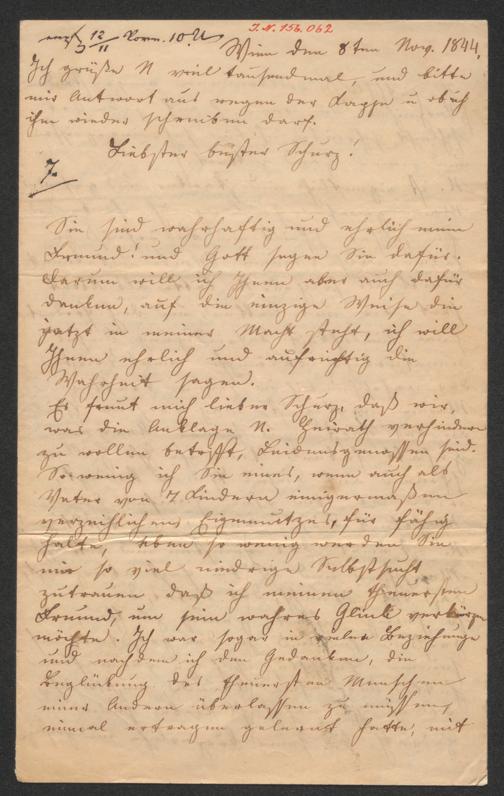 empf 12/11 Vorm. 10 U
I.N. 156.062
Wien den 8ten Nov. 1844.
Ich grüße N viel tausendmal, und bitte
mir Antwort aus wegen der Kappe u ob ich
ihm wieder schreiben darf.
Liebster bester Schurz!
7.
Sie sind wahrhaftig und ehrlich mein
Freund! und Gott segne Sie dafür.
Darum will ich Ihnen aber auch dafür
danken, auf die einzige Weise die
jetzt in meiner Macht steht, ich will
Ihnen ehrlich und aufrichtig die
Wahrheit sagen.
Es freut mich lieber Schurz, daß wir,
was die Anklage N. Heirath verhindern
zu wollen betrifft, Leidensgenossen sind.
So wenig ich Sie eines, wenn auch als
Vater von 7 Kindern einigermaßen
verzeihlichen Eigennutzes, für fähig
halte, eben so wenig werden Sie
mir so viel niedrige Selbstsucht
zutrauen daß ich meinem theuersten
Freund, um sein wahres Glück verkürzen
möchte. Ich war sogar in vielen Beziehungen
und nachdem ich den Gedanken, die
Beglückung des theuersten Menschen
einer Andern überlassen zu müssen,
einmal ertragen gelernt hatte, mit